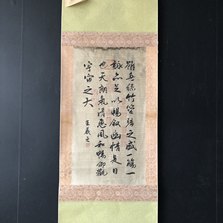 雖無絲竹管弦之盛一觴一
詠亦足以暢叙幽情是日
也天朗氣清惠風和暢仰觀
宇宙之大
王羲之